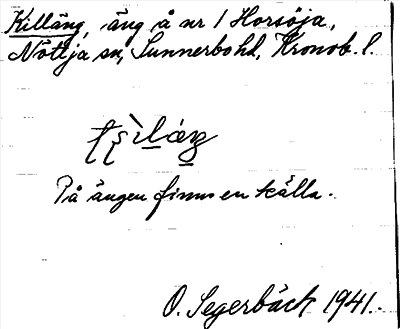 Killäng, äng å nr 1 Horsöja,
Nöttja sn, Sunnerbo hd, Kronob. l.
På ängen finns en källa.
O. Segerbäck 1941.